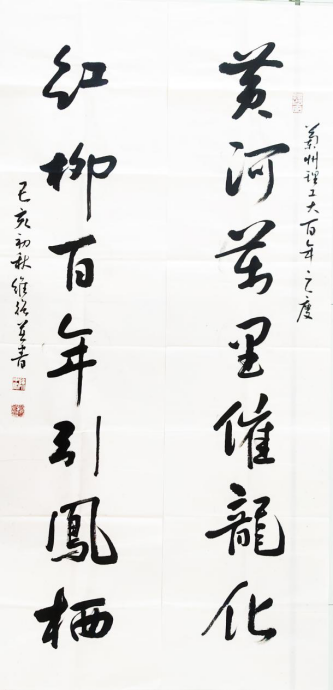 蘭州理工大百年之慶
黃河萬里催龍化
紅柳百年引鳳栖
己亥初秋維並書